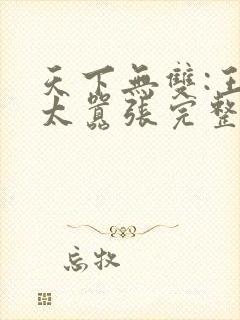 天下無雙:王
太囂張完整
忘牧